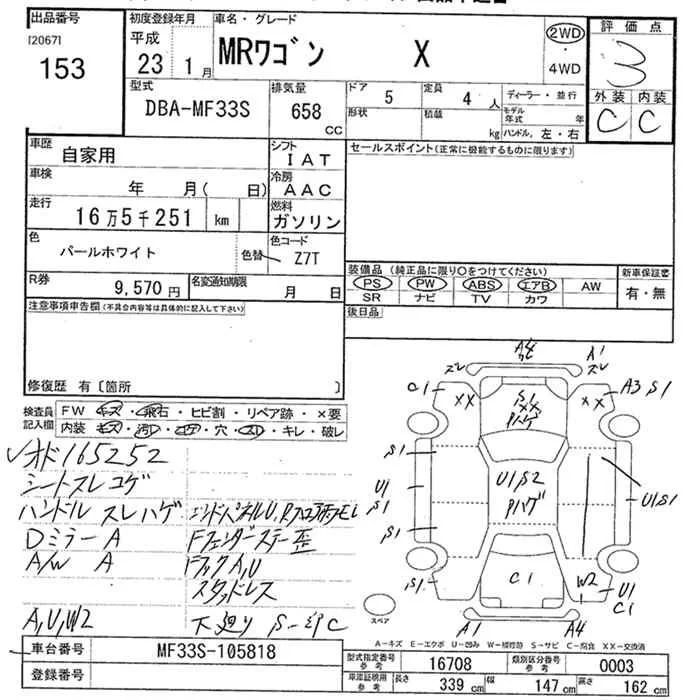 出品番号
[2067]
153
初度登録年月
平成
23 年 1 月
車名・グレード
MRワゴン X
2WD
・
4WD
評価点
3
外装 内装
C C
型式
DBA-MF33S
排気量
658
CC
ドア
5
定員
4 人
形状
積載
kg
ディーラー・並行
モデル年式 年
ハンドル, 左・右
車歴
自家用
シフト
IAT
車検
年 月( 日)
冷房
AAC
走行
16万5千251 km
燃料
ガソリン
色
パールホワイト
色替
色コード
Z7T
R券
9,570 円
名変通知期限
月 日
セールスポイント(正常に機能するものに限ります)
装備品 (純正品に限り○をつけてください)
PS PW ABS エアB AW
SR ナビ TV カワ
新車保証書
有・無
後日品
注意事項申告欄(不具合内容等は具体的に記入して下さい)
修復歴 有〔箇所 〕
検査員
記入欄
FW キズ・飛石・ヒビ割・リペア跡・×要
内装 キズ・汚レ・コゲ・穴・スレ・キレ・破レ
オド165252
シートスレコゲ
ハンドルスレハゲ
Dミラー A
A/W A
A,U,W2
Fフェンダーステー歪
スタッドレス
下廻り S-中C
A1
スレ
スレ
C1
XX
S1
XX
Pハゲ
XX
A3 S1
S1
U1
S1
S1
U1S2
Pハゲ
U1S1
S1
C1
W2
U1
C1
A1
A4
スペア
A-キズ E-エクボ U-凹み W-補修跡 S-サビ C-腐食 XX-交換済
車台番号
MF33S-105818
登録番号
型式指定番号
参考
16708
類別区分番号
参考
0003
車庫証明用
参考
長さ 339 cm 幅 147 cm 高さ 162 cm